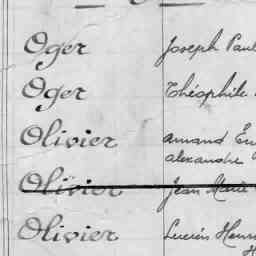 Oger Joseph Paul
Oger Théophile
Olivier Amand Eu
alexandre
Olivier Jean Marie
Olivier Lucien Henri